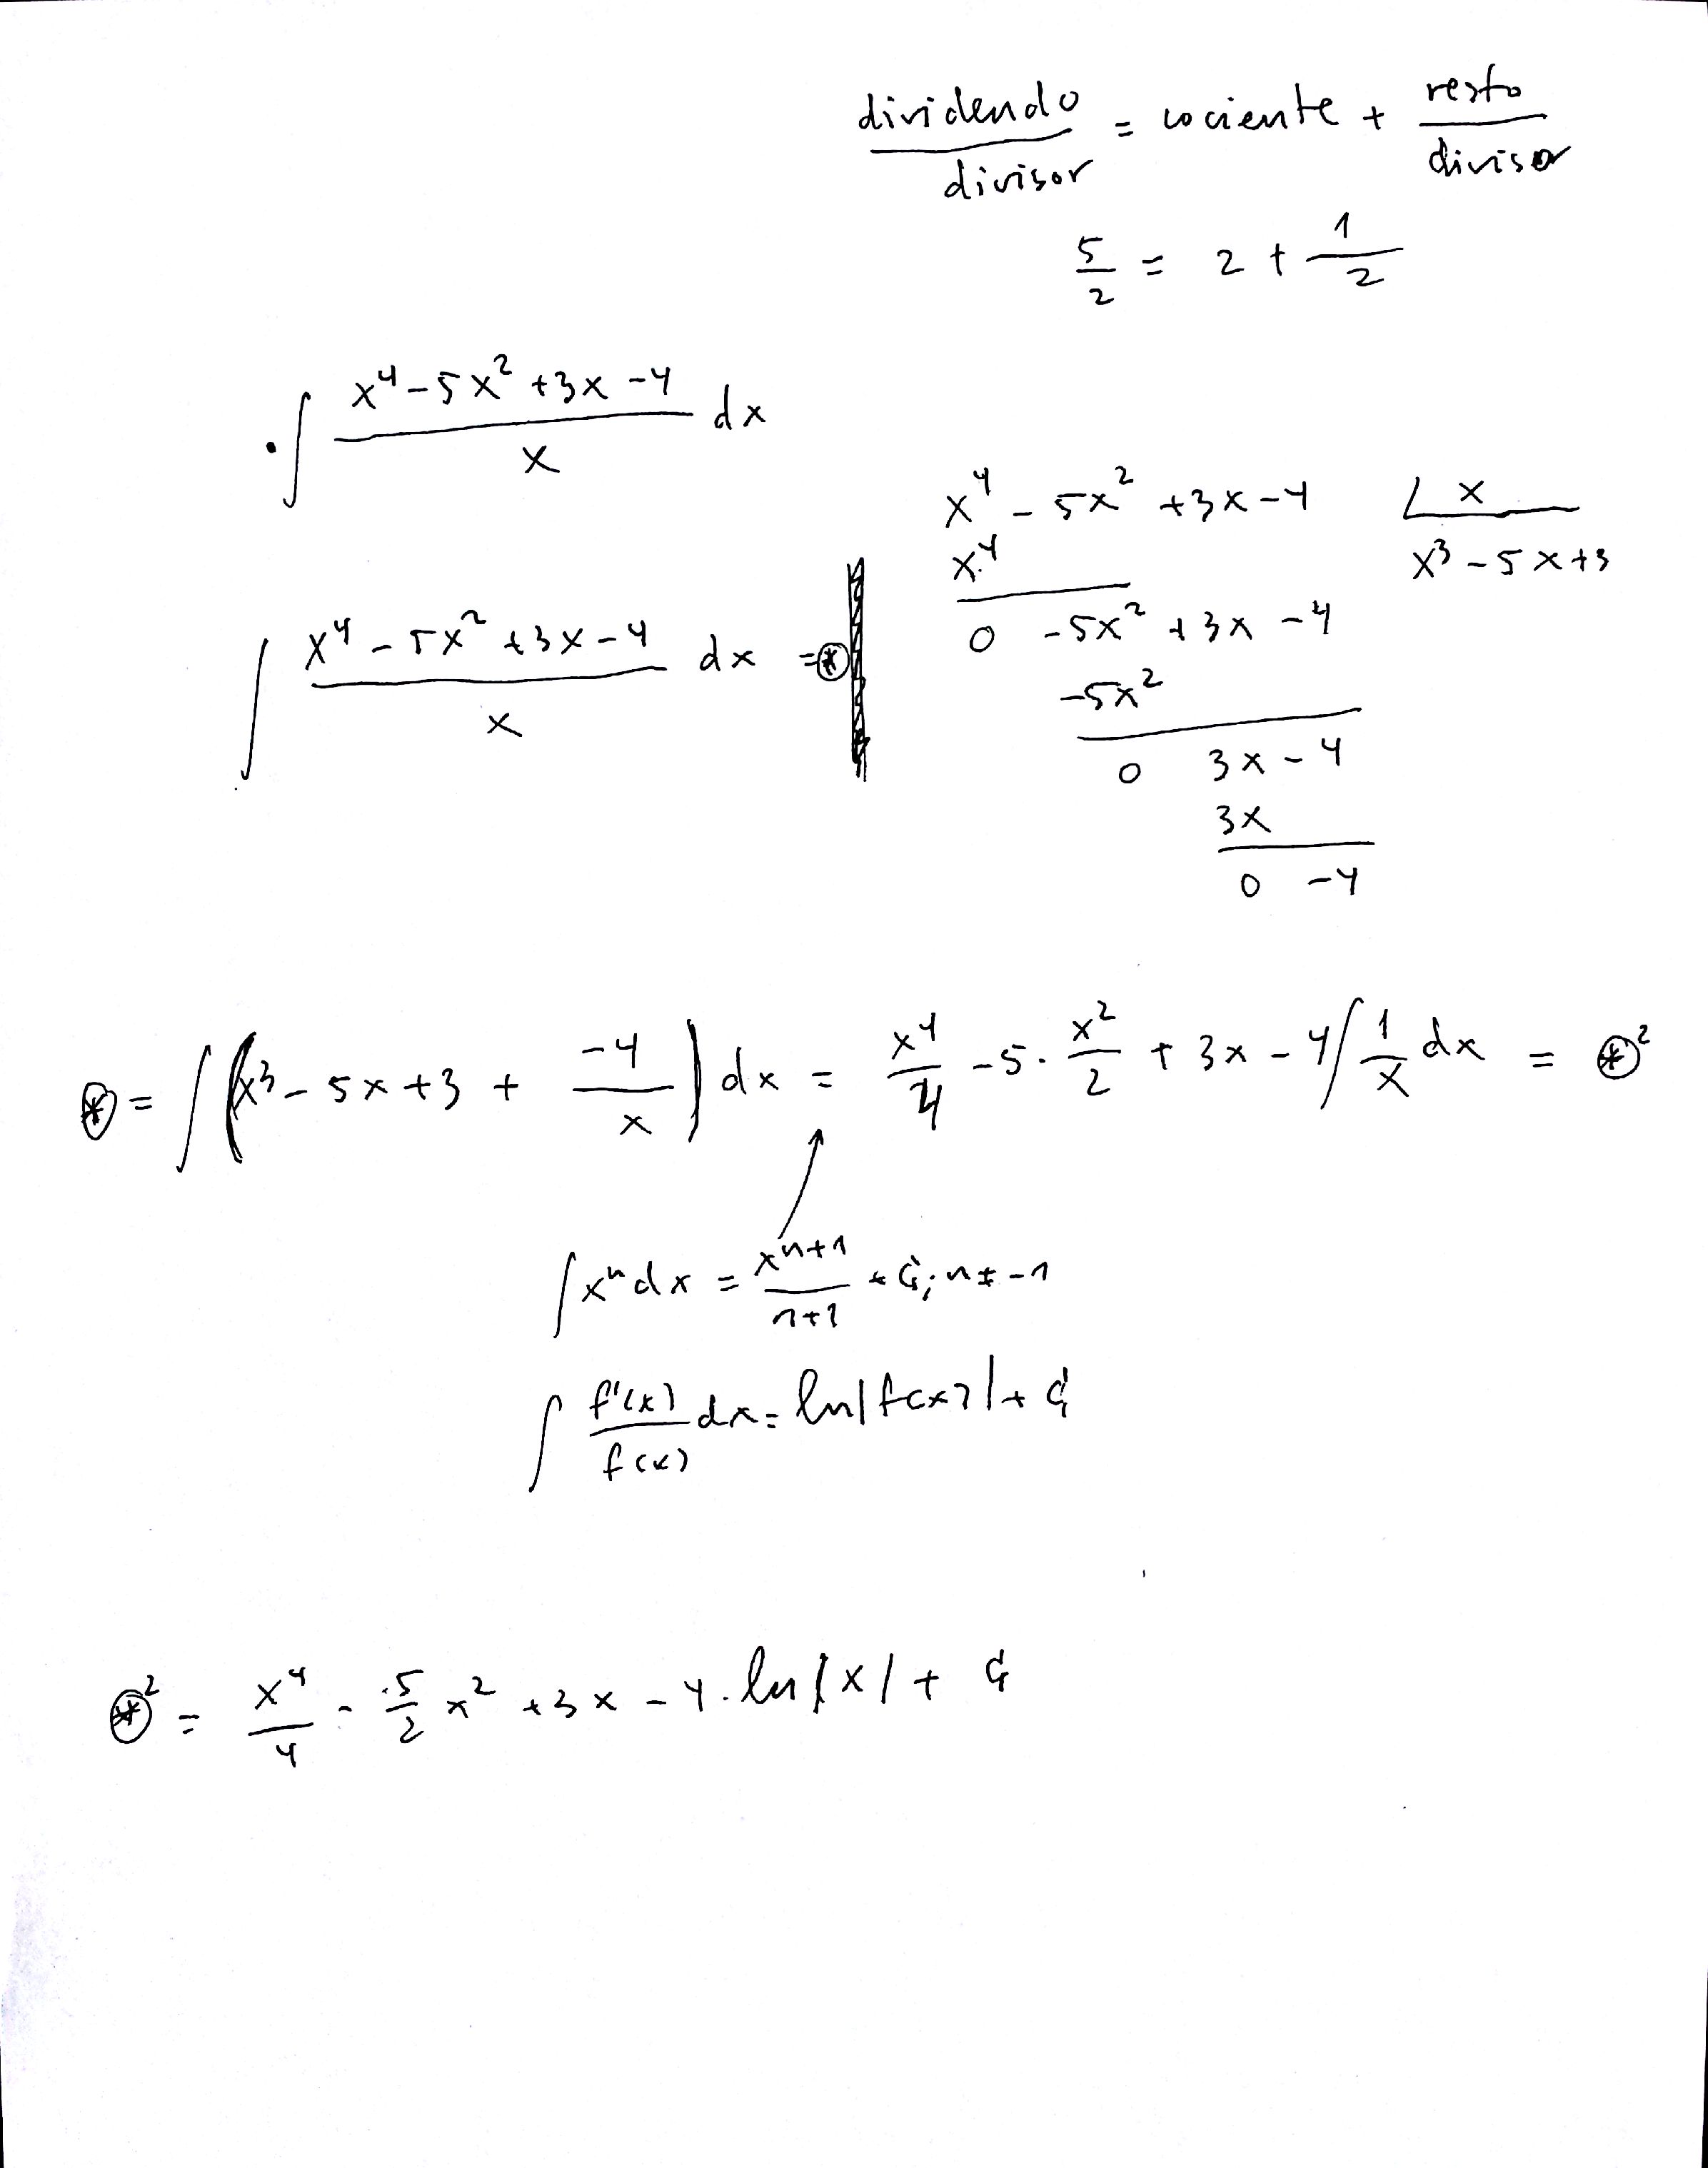 dividendo/divisor = cociente + resto/divisor
5/2 = 2 + 1/2
· ∫ (x⁴ - 5x² + 3x - 4)/x dx
x⁴ - 5x² + 3x - 4 ∟ x
x⁴ x³ - 5x + 3
0 - 5x² + 3x - 4
∫ (x⁴ - 5x² + 3x - 4)/x dx = ⊛
-5x²
0 3x - 4
3x
0 - 4
⊛ = ∫ (x³ - 5x + 3 + -4/x) dx = x⁴/4 - 5 · x²/2 + 3x - 4 ∫ 1/x dx = ⊛²
∫ xⁿ dx = xⁿ⁺¹/(n+1) + C; n ≠ -1
∫ f'(x)/f(x) dx = ln|f(x)| + C
⊛² = x⁴/4 - 5/2 x² + 3x - 4 · ln|x| + C